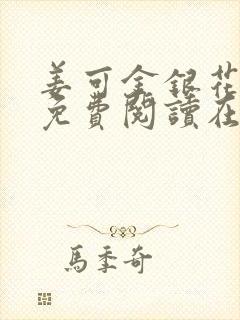 姜可金銀花
免費閱讀在
馬季奇